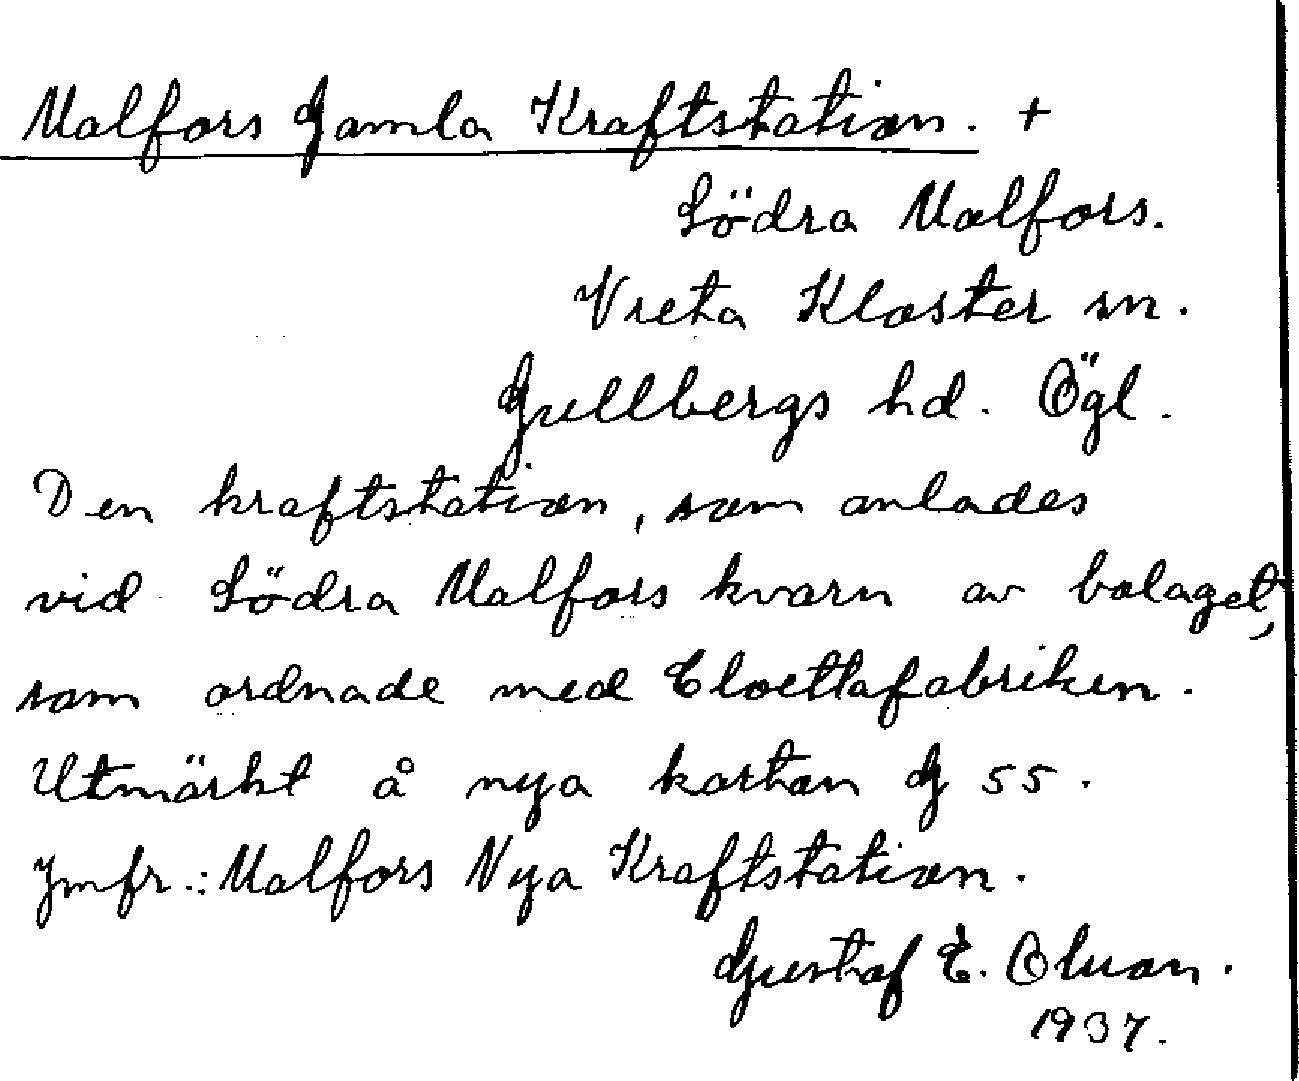 Malfors Gamla Kraftstation. +
Södra Malfors.
Vreta Kloster sn.
Gullbergs hd. Ögl.
Den kraftstation, som anlades
vid Södra Malfors kvarn av bolaget,
som ordnade med Cloettafabriken.
Utmärkt å nya kartan G 55.
Jmfr.: Malfors Nya Kraftstation.
Gustaf E. Olsson.
1937.